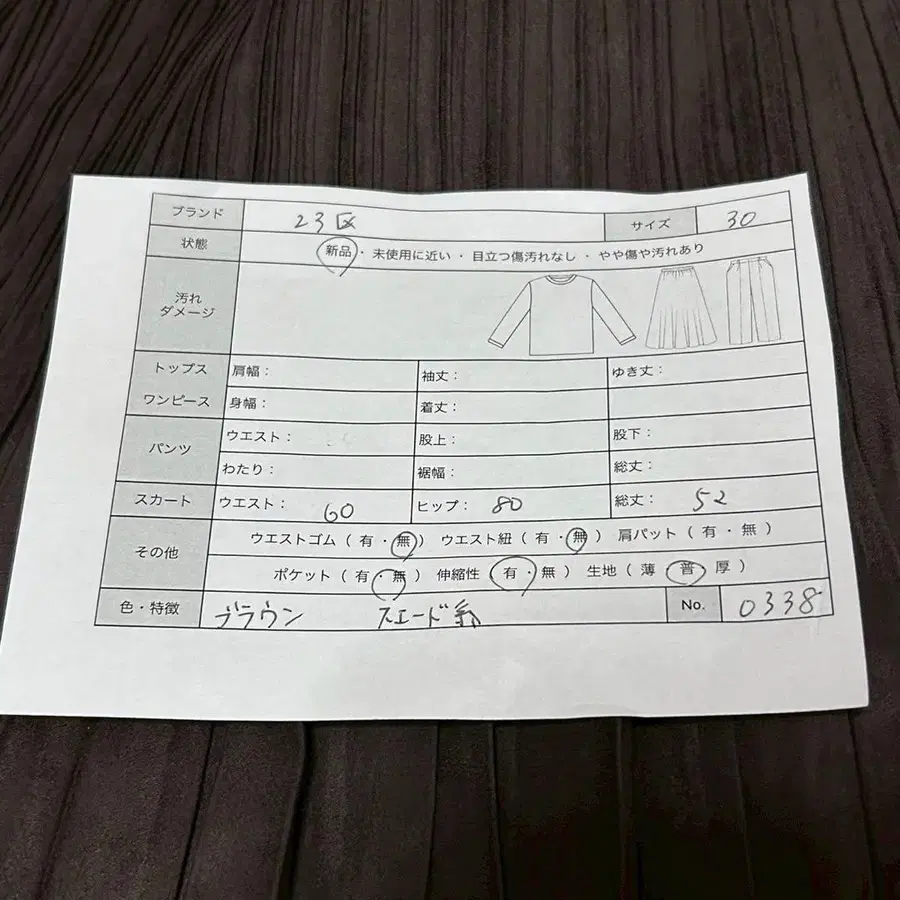 ブランド 23区 サイズ 30
状態 新品・未使用に近い・目立つ傷汚れなし・やや傷や汚れあり
汚れ
ダメージ
トップス 肩幅： 袖丈： ゆき丈：
ワンピース 身幅： 着丈：
パンツ ウエスト： 股上： 股下：
わたり： 裾幅： 総丈：
スカート ウエスト： 60 ヒップ： 80 総丈： 52
その他 ウエストゴム（ 有 ・ 無 ） ウエスト紐（ 有 ・ 無 ） 肩パット（ 有 ・ 無 ）
ポケット（ 有 ・ 無 ） 伸縮性（ 有 ・ 無 ） 生地（ 薄 普 厚 ）
色・特徴 ブラウン スエード系 No. 0338